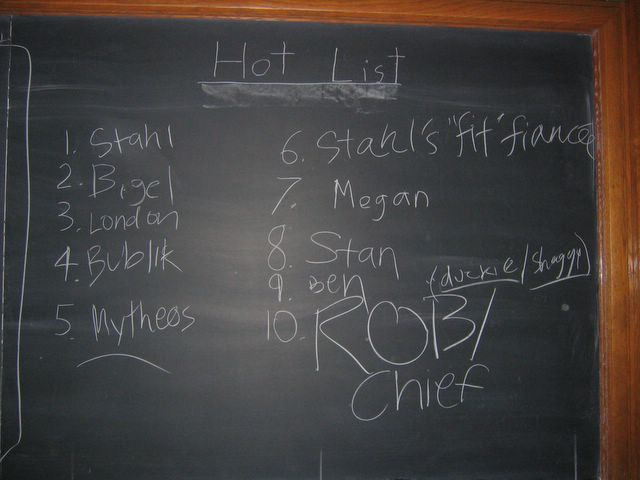 Hot List
1. Stahl
2. Bigel
3. London
4. Bublik
5. Mytheos
6. Stahl's "fit" fiancee
7. Megan
8. Stan
9. Ben (duckie/shaggy)
10. ROB/
Chief